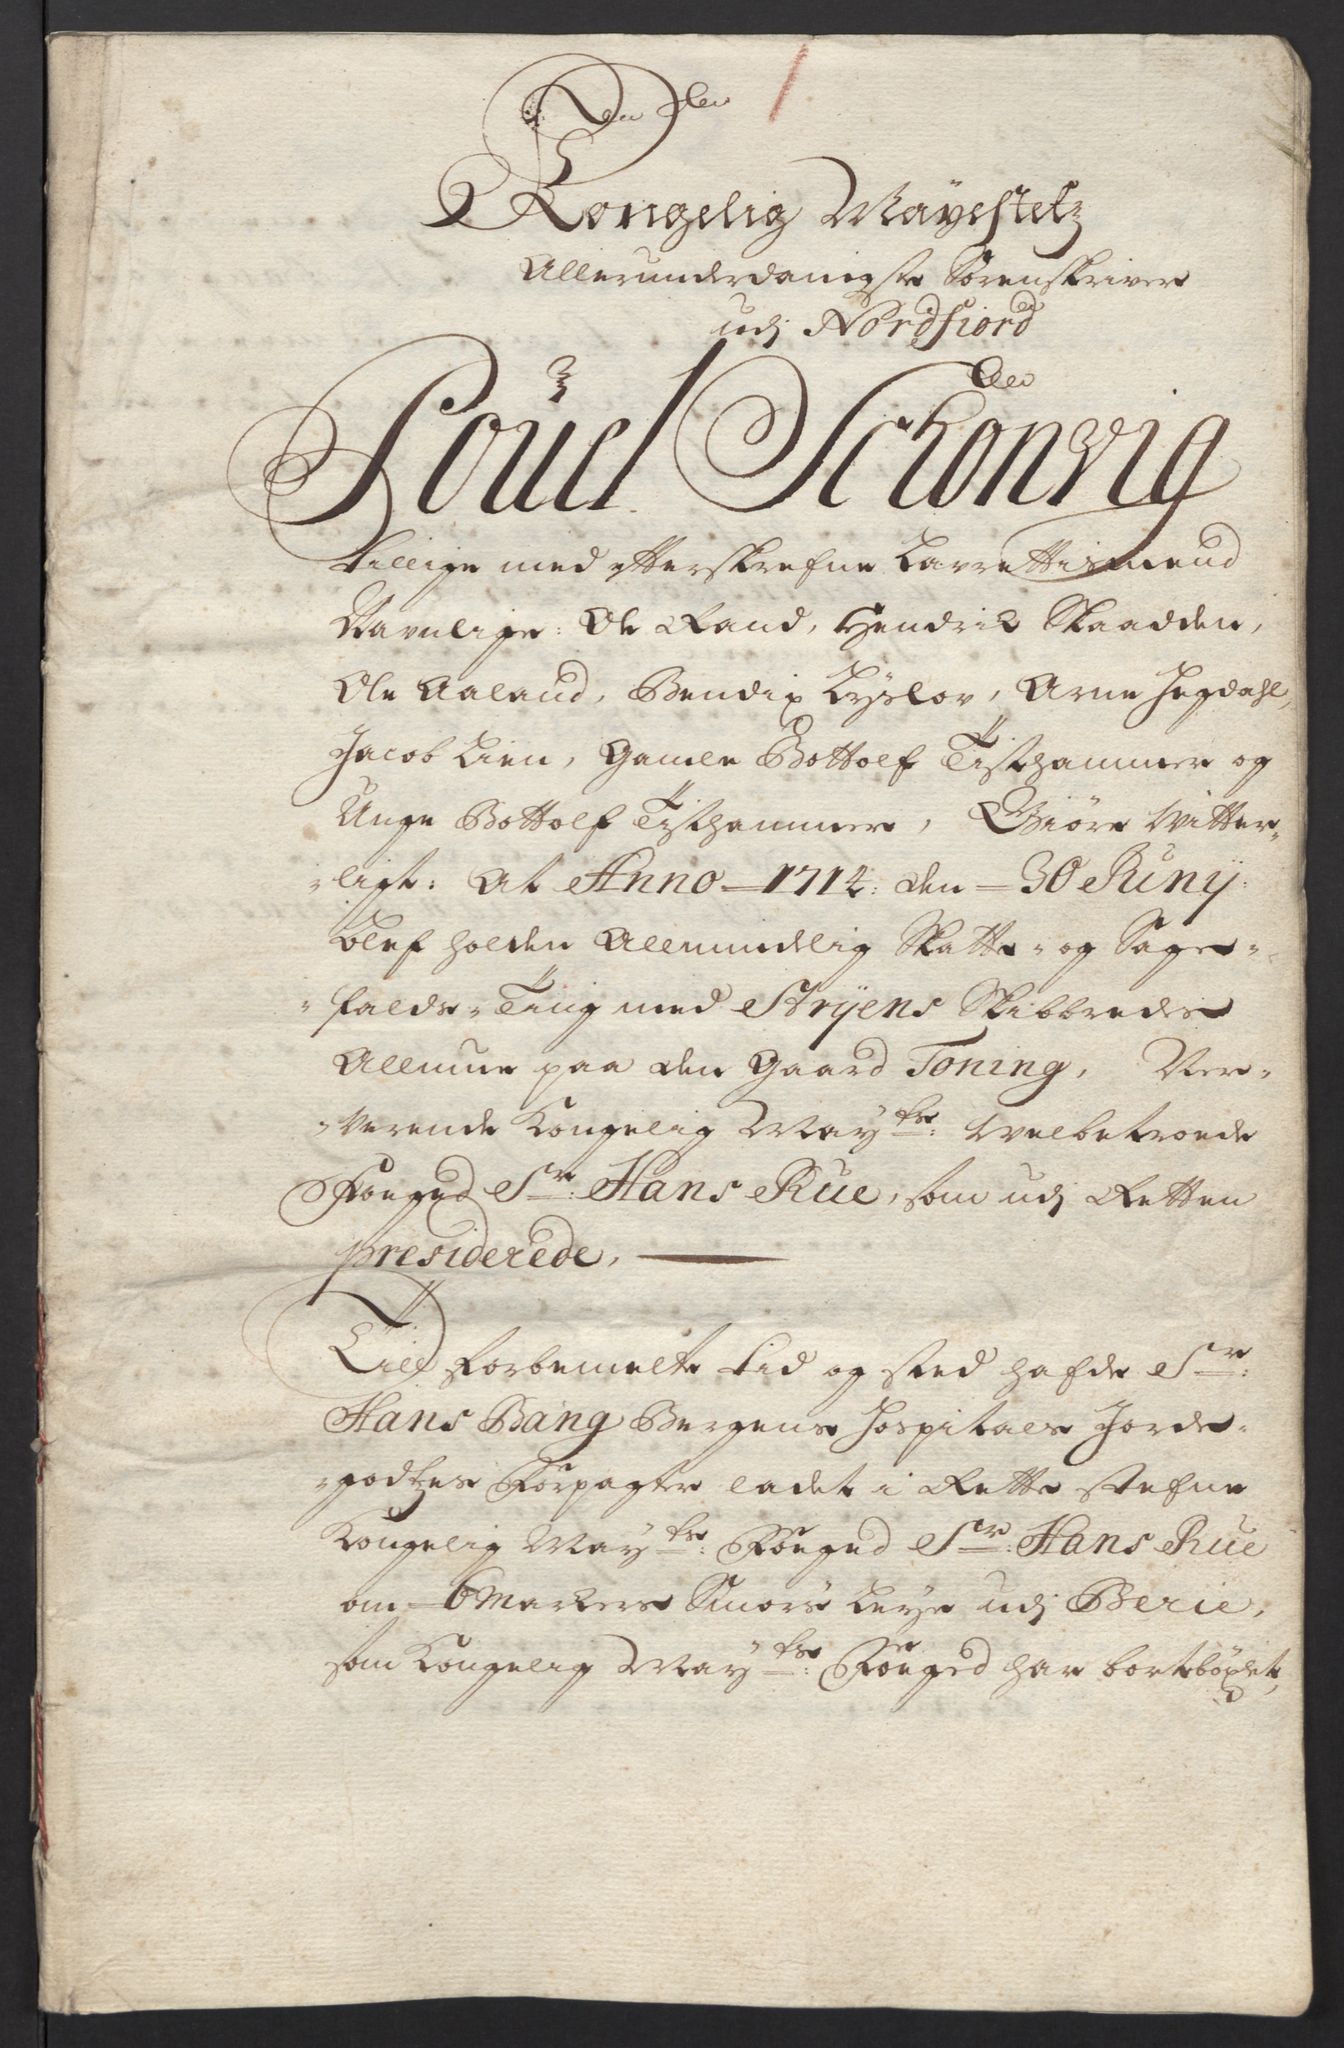 Kongelig Maÿestetz
Allerunderdanigste Sorenskriver
udj Nordfiord
Pouel Schonvig
Tillige med efterskrefne Lavrettismend
Navnlige: Ole Rand, Hendrik Skaadden,
Ole Aaland, Bendix Lÿslov, Arne Hegdahl,
Jacob Lien, Gamle Bottolf Tisthammer og
Unge Bottolf Tisthammer, Giöre Witter-
-ligt: At Anno 1714: den 30 Junÿ:
blef holden Allmindelig Skatte- og Sage-
-falds-Ting med Strÿens Skibbredes
Allmue paa den Gaard Toning, Ner-
-verende Kongelig Maÿts: Welbetroede
Foeged Sr: Hans Rue, som udj Retten
presiderede,
Till forbemelte tid og sted hafde Sr:
Hans Bang Bergens Hospitals Jorde-
-godtzes Forpagter ladet i Rette stefne
Kongelig Maÿts: Foeged Sr: Hans Rue
om 6 Markers Smörs Leye udj Berie,
som Kongelig Maÿts: Foeged har bortbÿxlet,